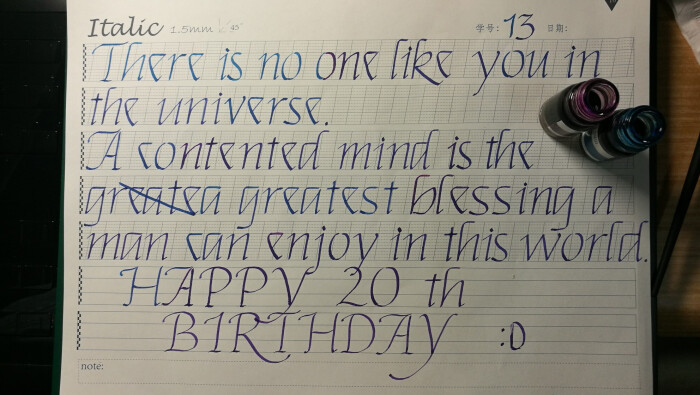 Italic 1.5mm 45° 学号: 13 日期:
There is no one like you in
the universe.
A contented mind is the
greatea greatest blessing a
man can enjoy in this world.
HAPPY 20 th
BIRTHDAY :D
note: